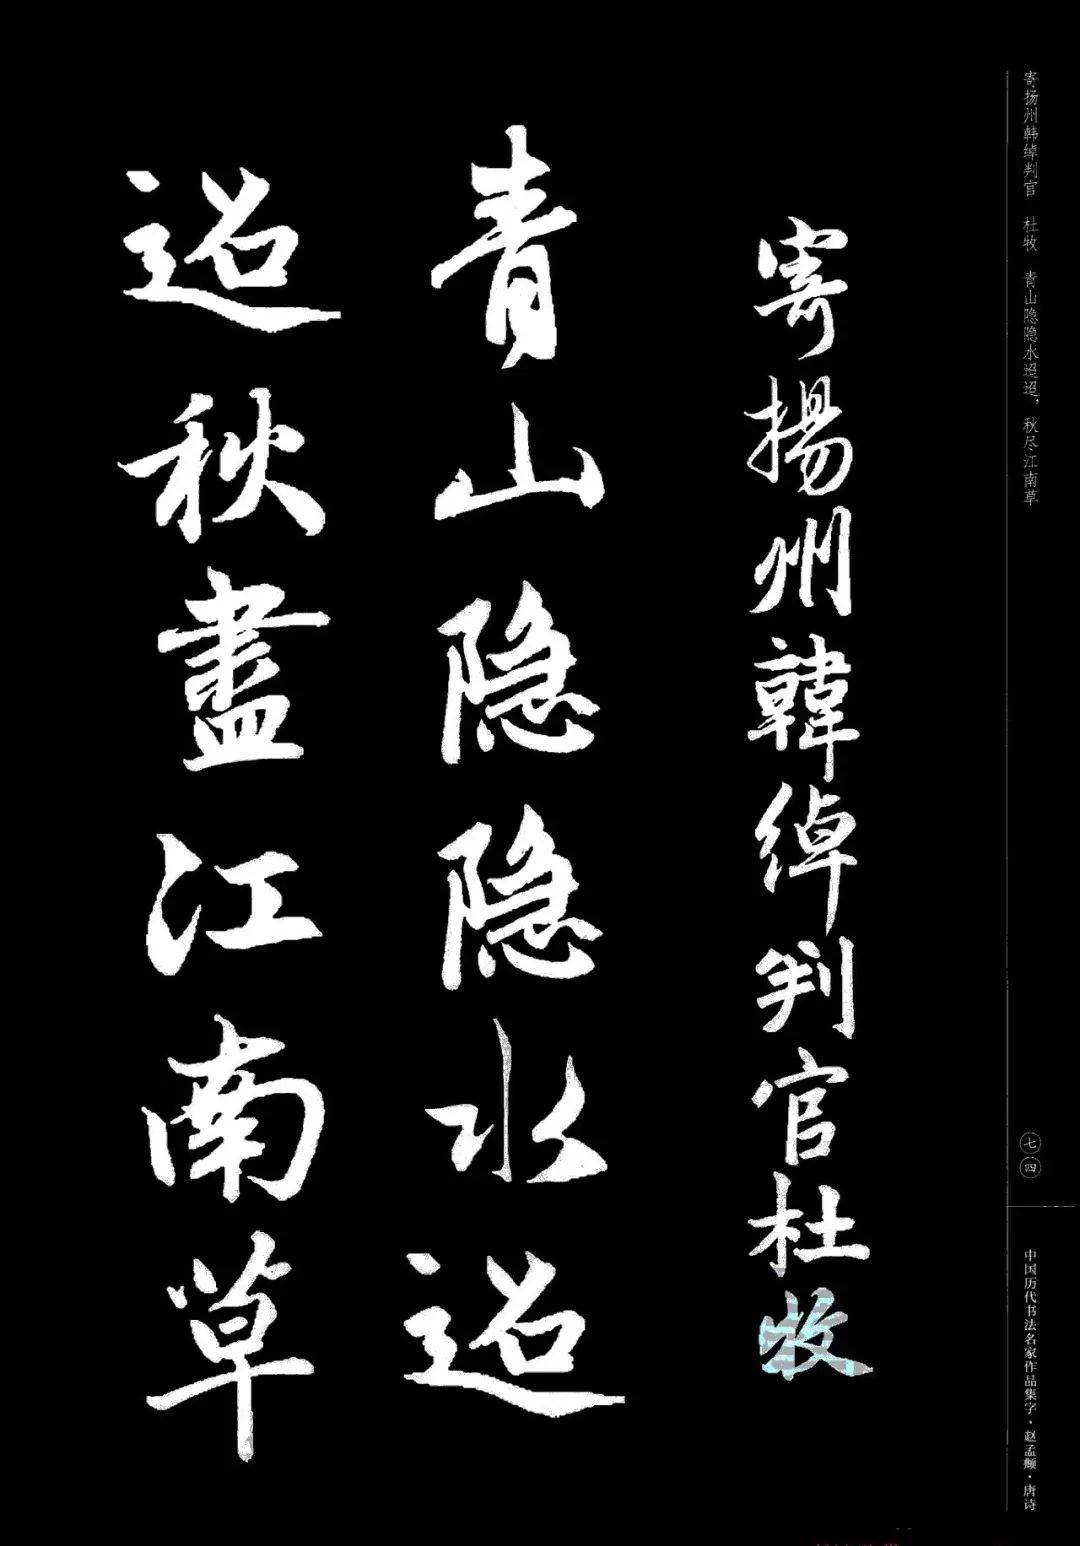 寄扬州韩绰判官 杜牧 青山隐隐水迢迢，秋尽江南草
七四
中国历代书法名家作品集字·赵孟頫·唐诗
寄揚州韓綽判官杜牧
青山隐隐水迢
迢秋盡江南草